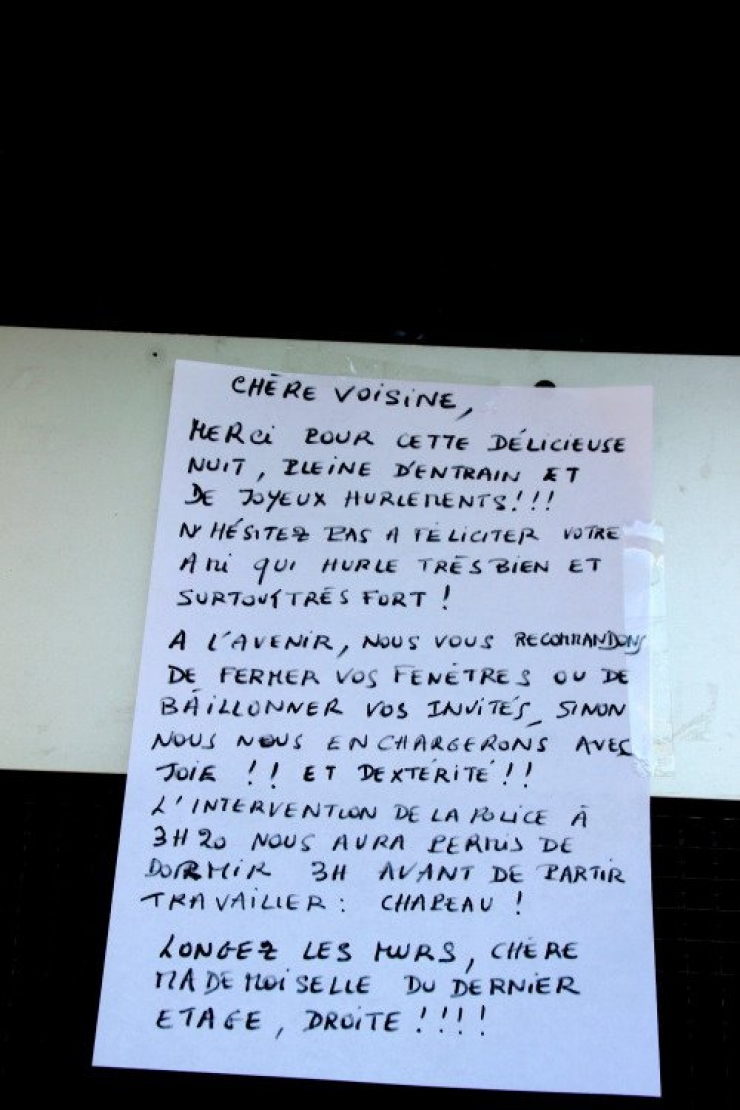 CHÈRE VOISINE,
MERCI POUR CETTE DÉLICIEUSE
NUIT, PLEINE D'ENTRAIN ET
DE JOYEUX HURLEMENTS!!!
N'HÉSITEZ PAS A FÉLICITER VOTRE
AMI QUI HURLE TRÈS BIEN ET
SURTOUT TRÈS FORT !
A L'AVENIR, NOUS VOUS RECOMMANDONS
DE FERMER VOS FENÊTRES OU DE
BÂILLONNER VOS INVITÉS, SINON
NOUS NOUS EN CHARGERONS AVEC
JOIE !! ET DEXTÉRITÉ !!
L'INTERVENTION DE LA POLICE À
3H20 NOUS AURA PERMIS DE
DORMIR 3H AVANT DE PARTIR
TRAVAILLER : CHAPEAU !
LONGEZ LES MURS, CHÈRE
MADEMOISELLE DU DERNIER
ETAGE, DROITE !!!!